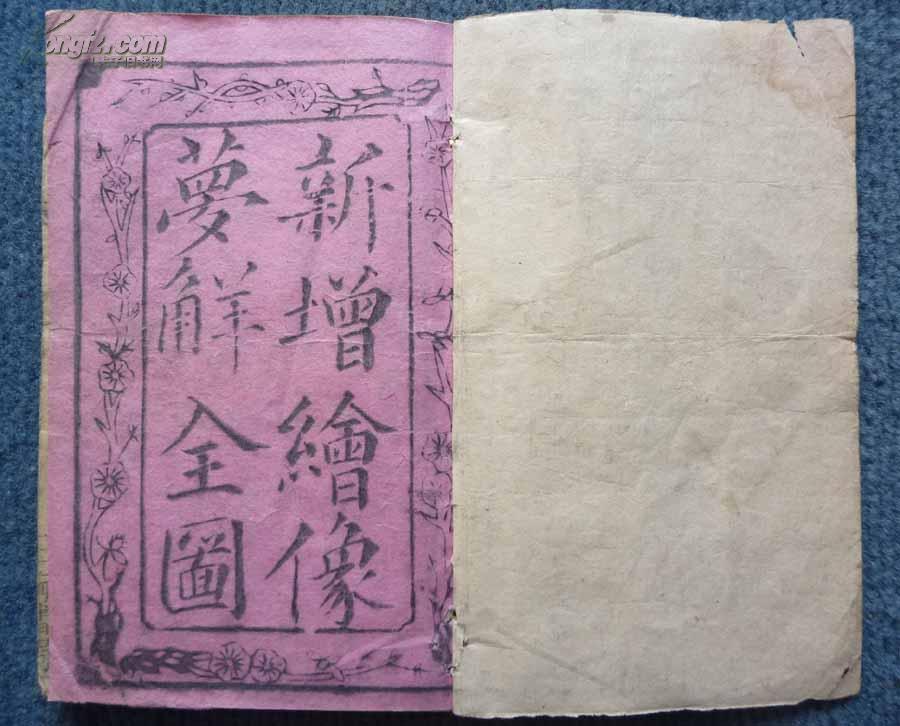 新增繪像
夢觧全圖